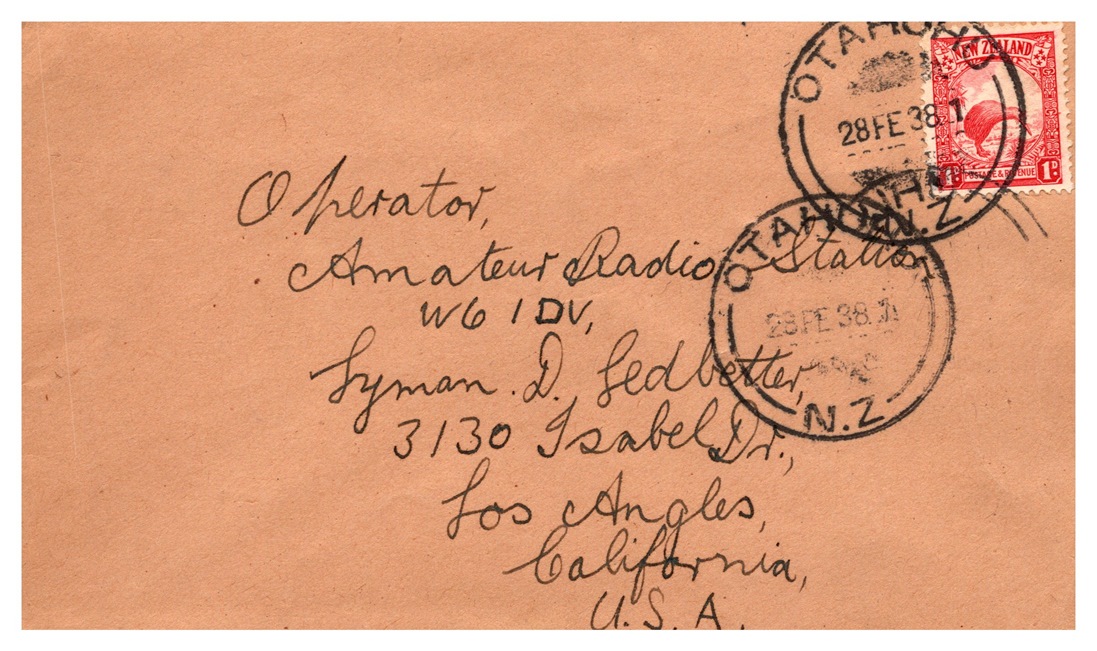 OTAHUHU
28 FE 38.1
N.Z
NEW ZEALAND
1D.
POSTAGE & REVENUE
1D.
OTAHUHU
28 FE 38.
N.Z
Operator,
Amateur Radio Station
W6 1DV,
Lyman. D. Ledbetter,
3130 Isabel Dr.,
Los Angles,
California,
U.S.A.